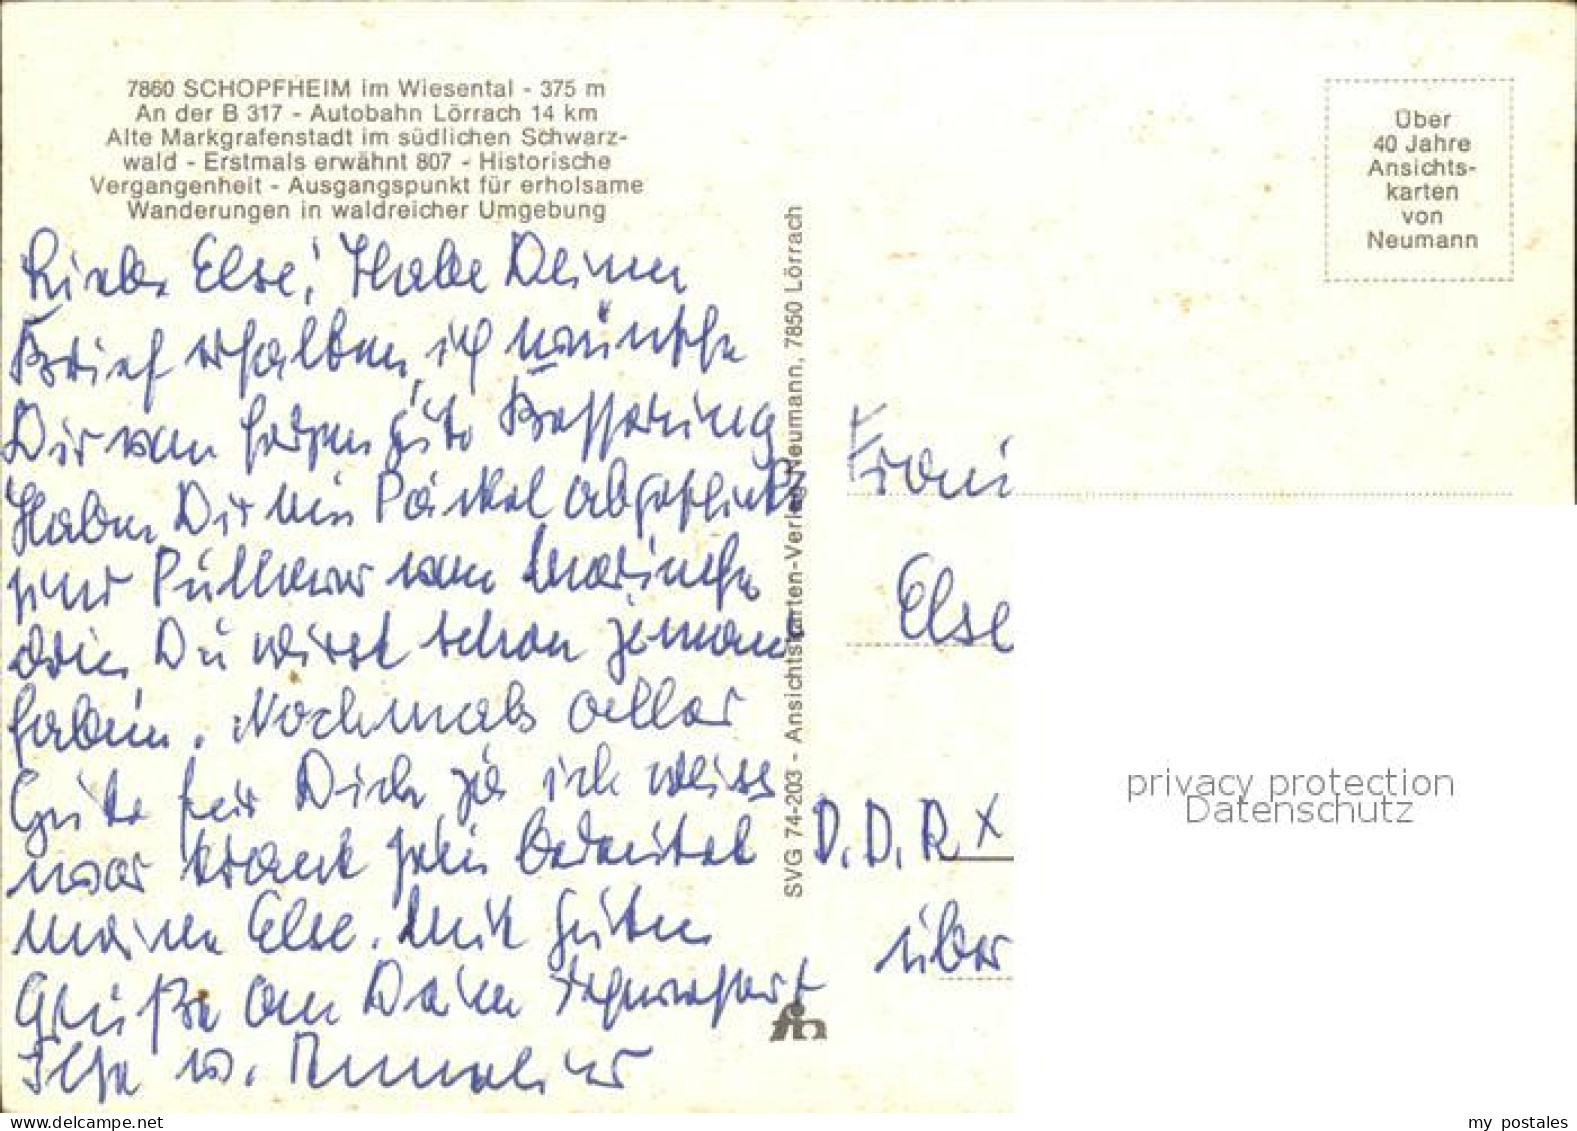 7860 SCHOPFHEIM im Wiesental - 375 m
An der B 317 - Autobahn Lörrach 14 km
Alte Markgrafenstadt im südlichen Schwarz-
wald - Erstmals erwähnt 807 - Historische
Vergangenheit - Ausgangspunkt für erholsame
Wanderungen in waldreicher Umgebung
Liebe Else! Habe Deinen
Brief erhalten, ich wünsche
Dir von Herzen gute Besserung
Habe Dir ein Päckel abgeschickt
Pullover von
Du wirst schon jeman
haben. Nochmals alles
Gute für Dich ja ich weiss
was krank sein bedeutet
meine Else. Mit guten
Grüße an Dein
Ilse u.
SVG 74-203 - Ansichtskarten-Verlag Neumann, 7850 Lörrach
Über
40 Jahre
Ansichts-
karten
von
Neumann
Frau
Else
D.D.R X
über
privacy protection
Datenschutz
my postales